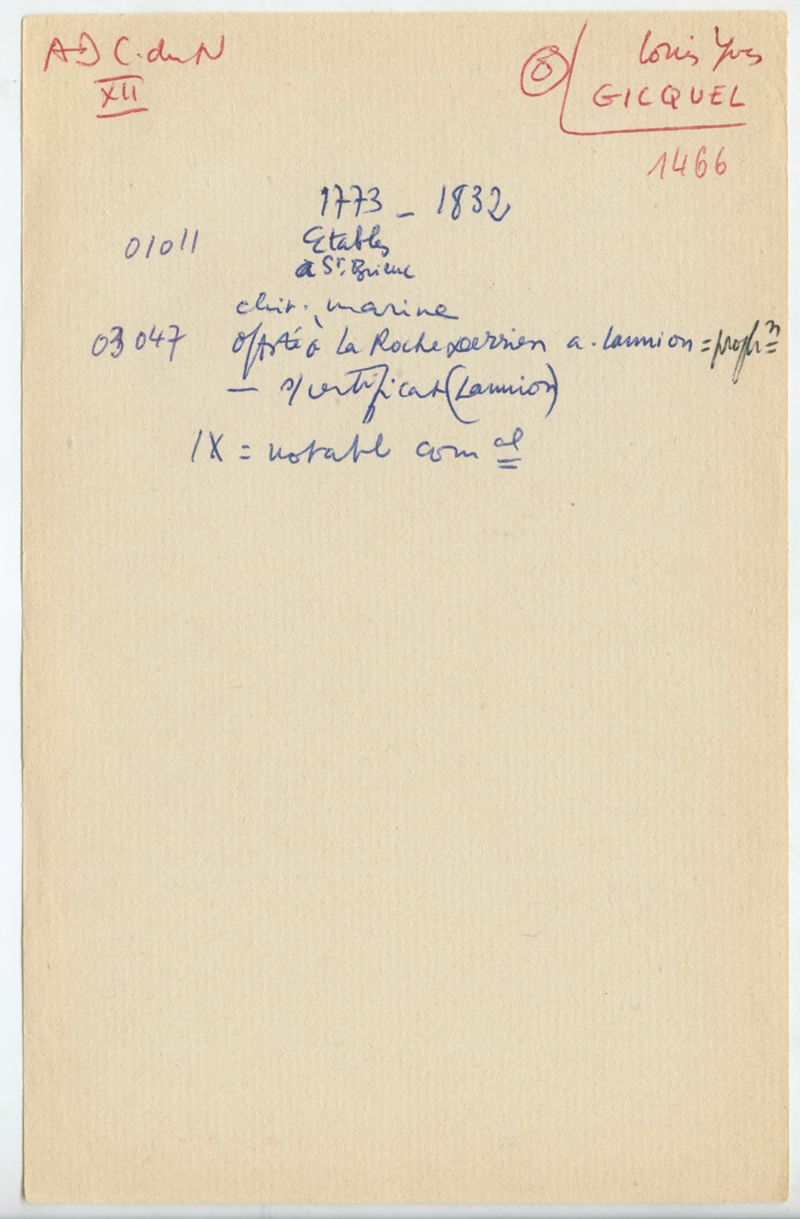 AD C. du N
XII
Louis Yves
GICQUEL
1466
1773 - 1832
01011 Etables
a St. Brieuc
chir. marine
03047 à La Rocheperrien a. Lannion =
— s/certificat (Lannion)
IX = notable com al